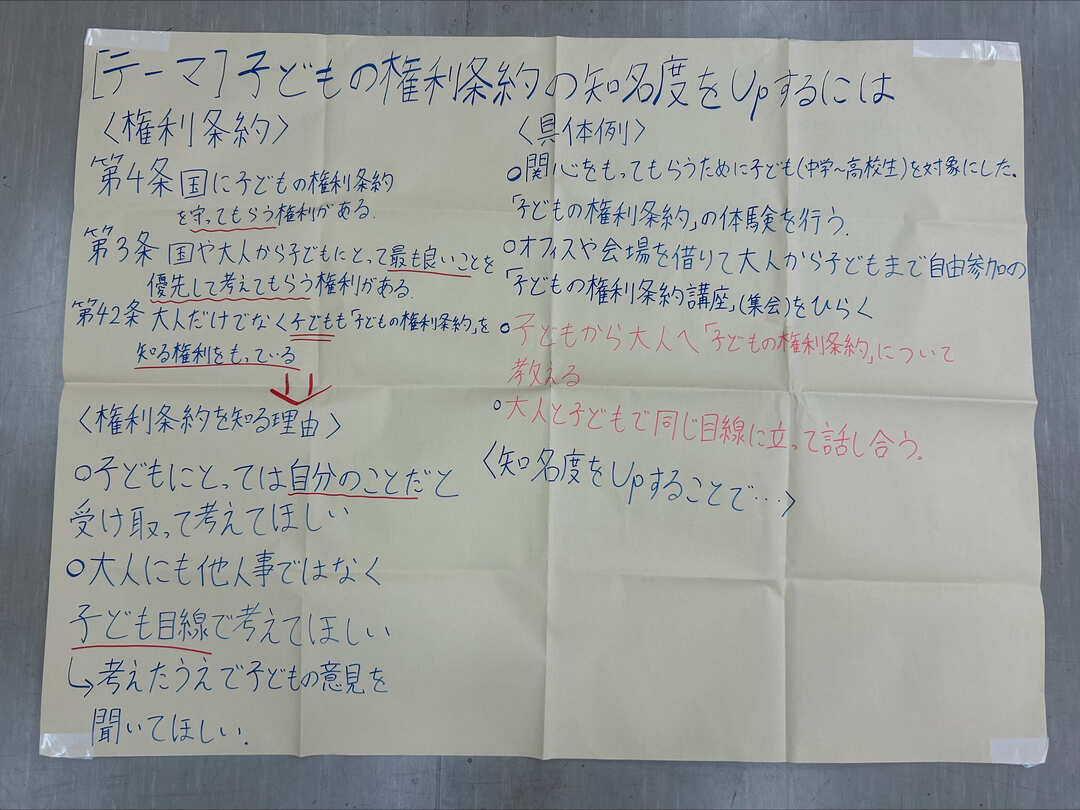 [テーマ]子どもの権利条約の知名度をUpするには
〈権利条約〉
第4条 国に子どもの権利条約
を守ってもらう権利がある.
第3条 国や大人から子どもにとって最も良いことを
優先して考えてもらう権利がある.
第42条 大人だけでなく子どもも「子どもの権利条約」を
知る権利をもっている
〈権利条約を知る理由〉
○子どもにとっては自分のことだと
受け取って考えてほしい
○大人にも他人事ではなく
子ども目線で考えてほしい
↳考えたうえで子どもの意見を
聞いてほしい.
〈具体例〉
○関心をもってもらうために子ども(中学~高校生)を対象にした.
「子どもの権利条約」の体験を行う.
○オフィスや会場を借りて大人から子どもまで自由参加の
「子どもの権利条約講座」(集会)をひらく
○子どもから大人へ「子どもの権利条約」について
教える
○大人と子どもで同じ目線に立って話し合う.
〈知名度をUpすることで…〉